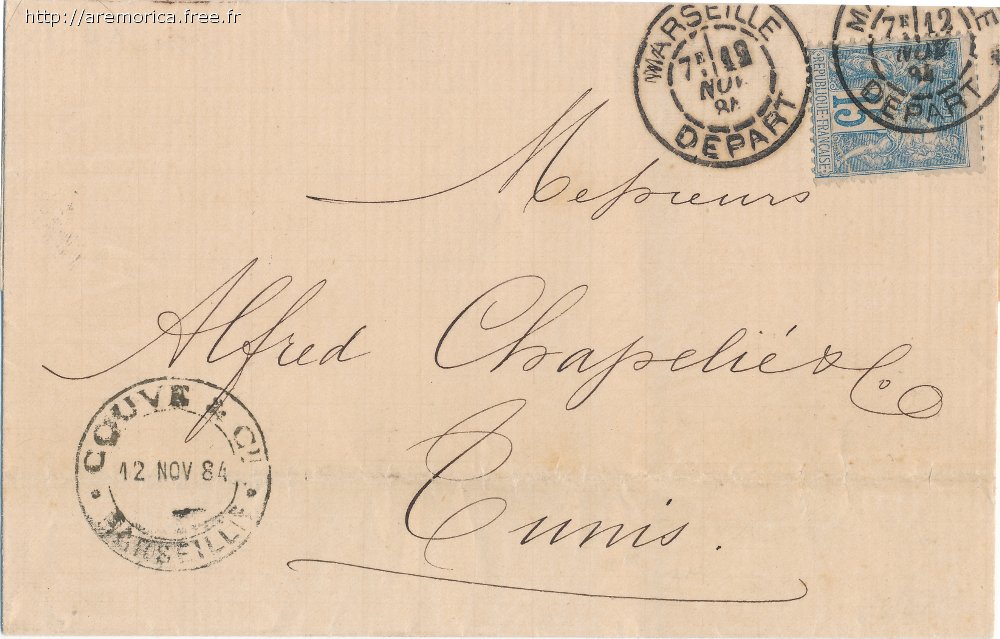 http://aremorica.free.fr
MARSEILLE
7E 12
NOV
84
DEPART
MARSEILLE
7E 12
NOV
84
DEPART
REPUBLIQUE FRANÇAISE
15
Messieurs
Alfred Chapelié & Co
Tunis.
COUVE & CIE
12 NOV 84
MARSEILLE